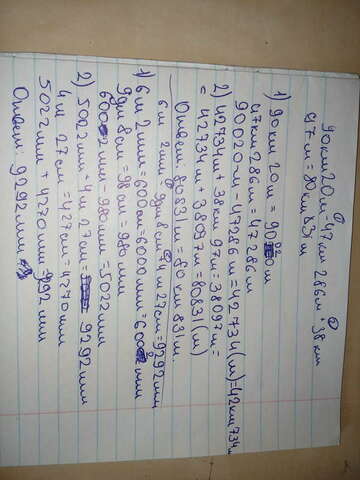 90 км 20 м - 47 км 286 м + 38 км
97 м = 80 км 831 м
1) 90 км 20 м = 90020 м
47 км 286 м = 47286 м
90020 м - 47286 м = 42734 (м) = 42 км 734 м
2) 42734 м + 38 км 97 м = 38097 м =
= 42734 м + 38097 м = 80831 (м)
Ответ: 80831 м = 80 км 831 м.
6 м 2 мм - 9 дм 8 см + 4 м 27 см = 9292 мм
1) 6 м 2 мм = 600 см = 6000 мм = 6002 мм
9 дм 8 см = 98 см = 980 мм
6002 мм - 980 мм = 5022 мм
2) 5022 мм + 4 м 27 см = 9292 мм
4 м 27 см = 427 см = 4270 мм
5022 мм + 4270 мм = 9292 мм
Ответ: 9292 мм